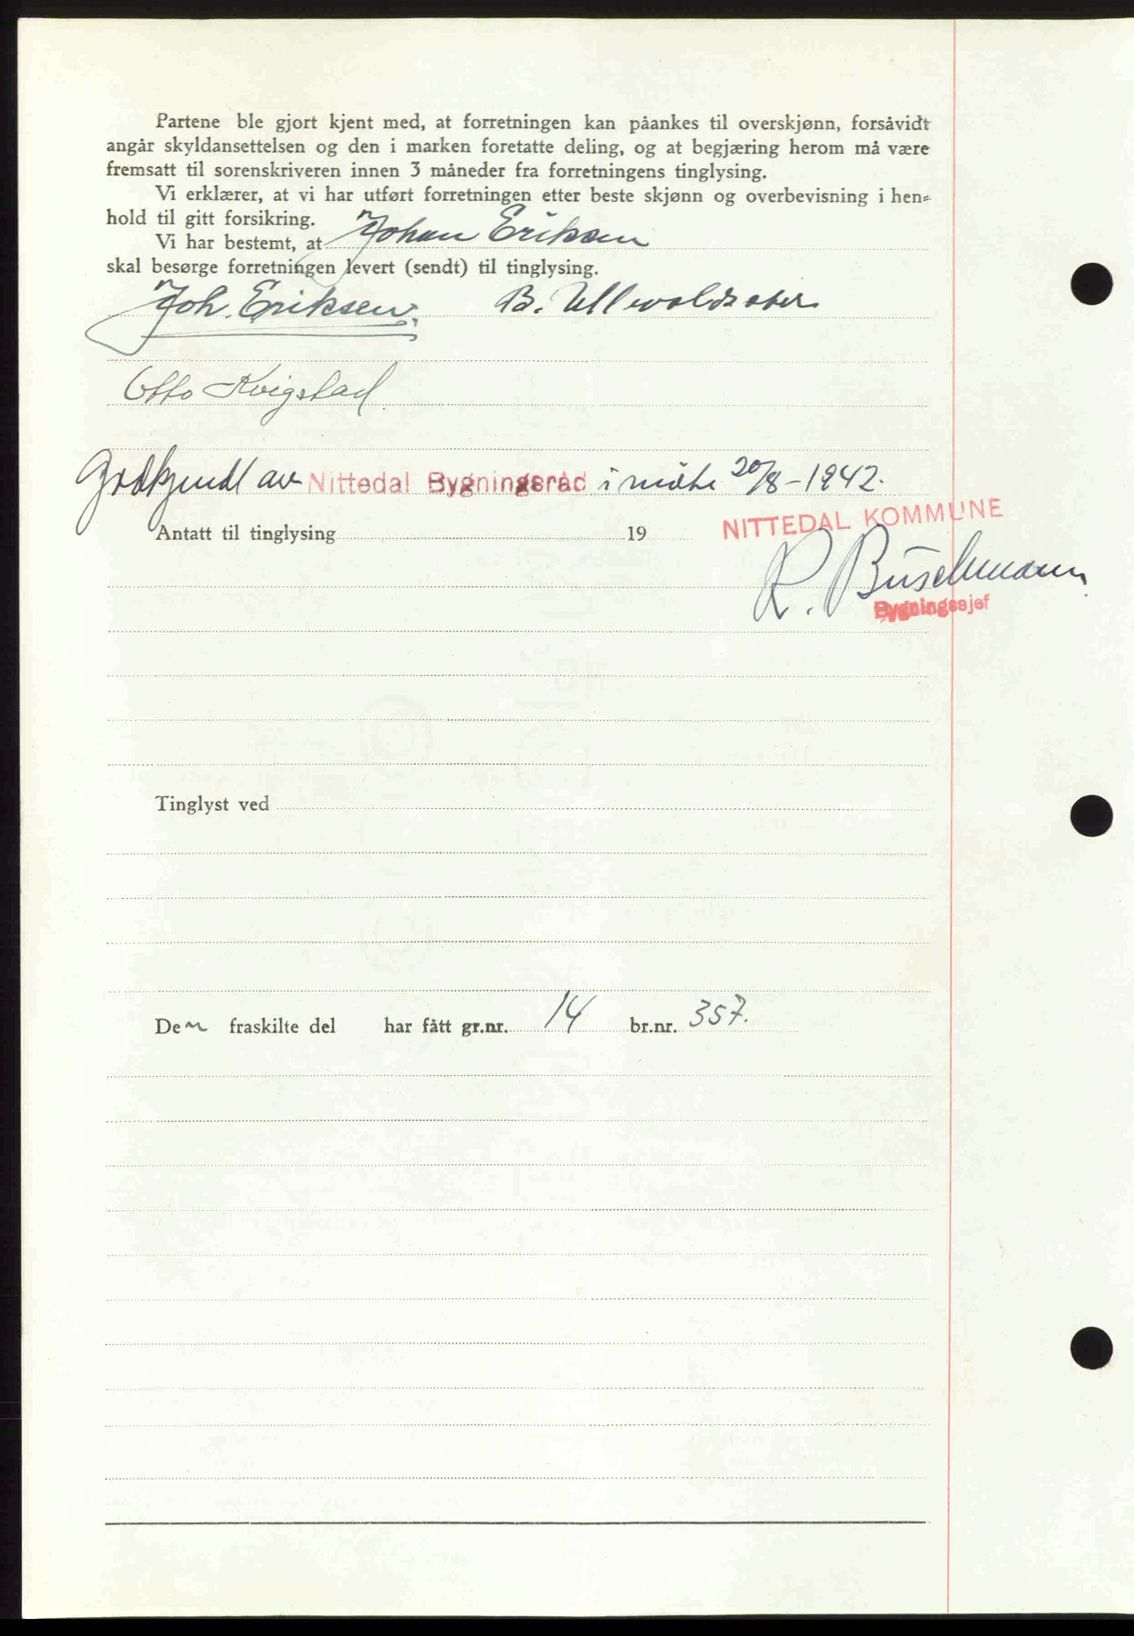 Partene ble gjort kjent med, at forretningen kan påankes til overskjønn, forsåvidt
angår skyldansettelsen og den i marken foretatte deling, og at begjæring herom må være
fremsatt til sorenskriveren innen 3 måneder fra forretningens tinglysing.
Vi erklærer, at vi har utført forretningen etter beste skjønn og overbevisning i hen-
hold til gitt forsikring.
Vi har bestemt, at Johan Eriksen
skal besørge forretningen levert (sendt) til tinglysing.
Joh. Eriksen. B.
Otto Kvigstad
Godkjendt av Nittedal Bygningsråd i møte 20/8-1942.
Antatt til tinglysing 19
NITTEDAL KOMMUNE
R. Buschmann
Bygningssjef
Tinglyst ved
Den fraskilte del har fått gr.nr. 14 br.nr. 357.